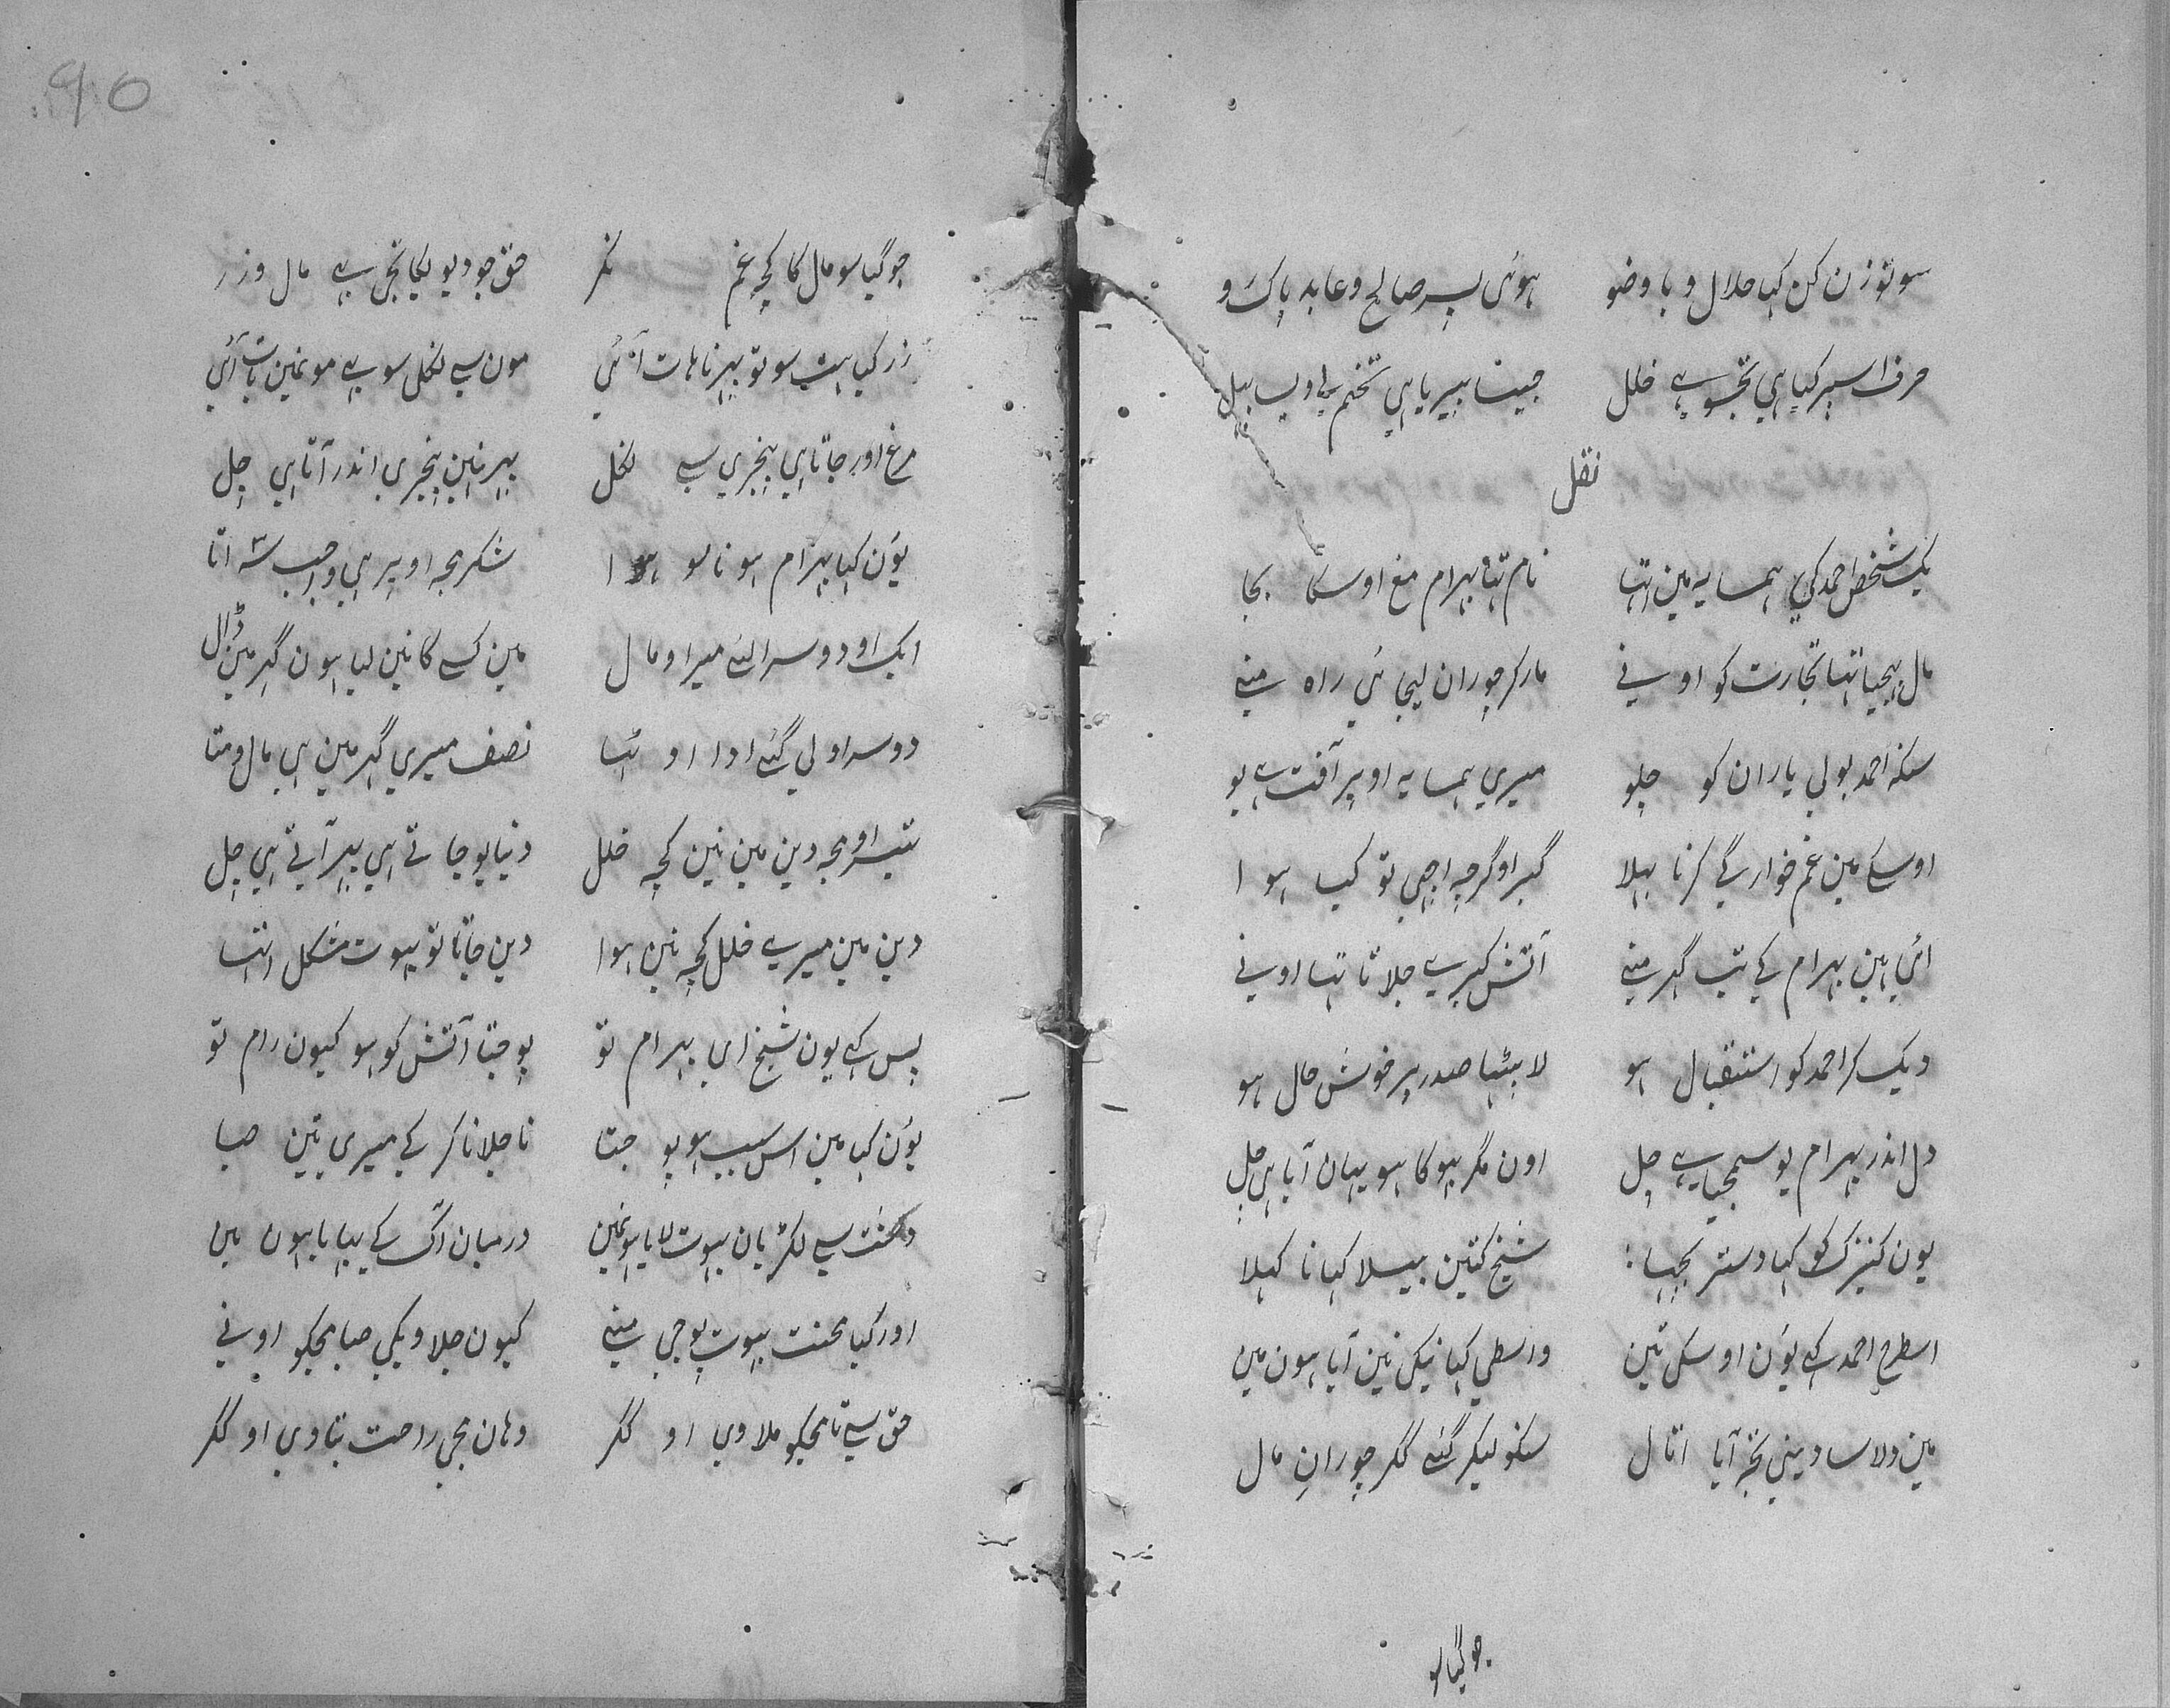 سو تو زن کن کیا حلال و باوضو ہوئی پسر صالح و عابد پاک و
حرف اسپر کیا ہی تجسے خلل جیتا
نقل
یک شخص احمد کی ہمسایہ مین اتہا نام تہا بہرام مغ اوسکا بجا
مال بہیجیا تہا تجارت کو اونے مار کر چوران لیجائی راہ منے
سنکہ احمد بولی یاران کو چلو میری ہمسایہ اوپر آفت ہے یو
اوسکے مین غم خوارگے کرنا بہلا گبر او گرچہ اچہی تو کیا ہوا
ائی ہین بہرام کے تب گہر منے آتش کبرے جلاتا تہا اونے
دیک کر احمد کو استقبال ہو لا بٹہیا صدر پر خوش حال ہو
دل اندر بہرام یو سمجہیا ہے چل اون مگر بہوکا ہو یہان آیا ہی چل
یون کنیزک کو کہیا دستر بچہیا شیخ کتین بیسلا کہیا نا کہلا
اسطرح احمد کہے یوں اوسکی تین واسطی کہانیکی نین آیا ہون مین
مین دلاسا دینی تجہ آیا اتال سنو لیکر گئے ککر چوران مال
جو گیا سو
جو گیا سو مال کا کچہ غم نکر حق جو دیویگا تجی ہے مال و زر
زر کیا ہٹ سو تو پہر نا ہات آئی مون سے نکل سو ہے مو نمین بات آئی
مرغ اور جاتا ہی پنجری سے نکل پہر نین پنجری اندر آتا ہی چل
یوں کہا بہرام ہونا سو ہوا شکر مجہ اوپر ہی واجب سہ اتا
ایک او دوسرا لئے میرا و مال مین کسے کا نین لیا ہون گہر مین ڈال
دوسرا و لی گئے ادا او نصف میری گہر مین ہی مال و متا
تیسرا و مجہ دین مین نین کچہ خلل دنیا یو جاتے ہی پہر آتے ہی چل
دین مین میرے خلل کچہ نین ہوا دین جاتا تو بہوت مشکل اتہا
پس کہے یون شیخ ای بہرام تو پوجتا آتش کو ہو کیون رام تو
یوں کہا مین اس سبب ہو پوجتا نا جلانا کر کے میری تین صبا
محنت سے لکڑیان بہوت لایا ہو نمین درمیان آگ کے بہایا ہون مین
اور کیا محنت بہوت پوجی منے کیون جلاویگی صبا مجکو اونے
حق سے تا مجکو ملاوی او ککر وہان مجی راحت بتاوی او ککر